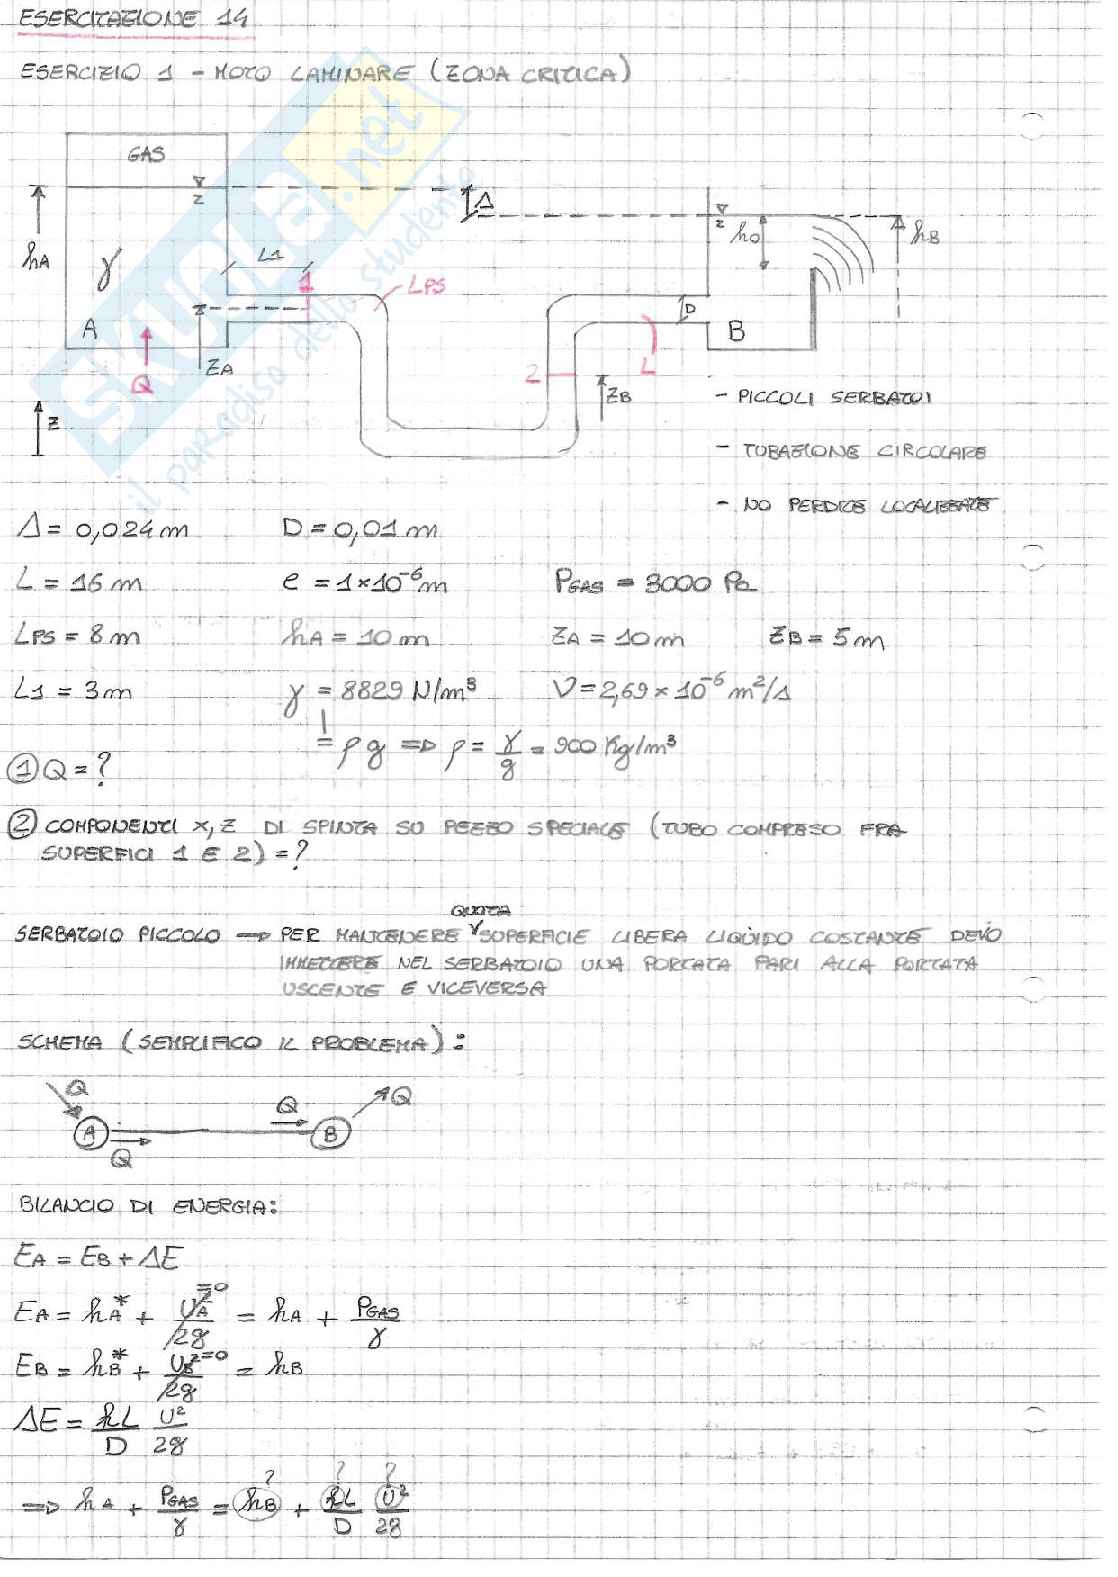 ESERCITAZIONE 14
ESERCIZIO 1 - MOTO LAMINARE (ZONA CRITICA)
GAS
Δ
h0
hB
hA
γ
L1
1
LPS
D
A
B
Q
ZA
2
L
ZB
Z
- PICCOLI SERBATOI
- TUBAZIONE CIRCOLARE
- NO PERDITE LOCALIZZATE
skuola.net
il paradiso dello studente
Δ = 0,024 m D = 0,01 m
L = 16 m e = 1×10⁻⁶ m PGAS = 3000 Pa
LPS = 8 m hA = 10 m ZA = 10 m ZB = 5 m
L1 = 3 m γ = 8829 N/m³ ν = 2,69 × 10⁻⁶ m²/s
= ρg ⇒ ρ = γ/g = 900 Kg/m³
① Q = ?
② COMPONENTI X, Z DI SPINTA SU PEZZO SPECIALE (TUBO COMPRESO FRA
SUPERFICI 1 E 2) = ?
QUOTA
SERBATOIO PICCOLO ⇒ PER MANTENERE SUPERFICIE LIBERA LIQUIDO COSTANTE DEVO
IMMETTERE NEL SERBATOIO UNA PORTATA PARI ALLA PORTATA
USCENTE E VICEVERSA
SCHEMA (SEMPLIFICO IL PROBLEMA):
Q Q Q
A B
Q
BILANCIO DI ENERGIA:
EA = EB + ΔE
EA = hA* + UA²/2g =0 = hA + PGAS/γ
EB = hB* + UB²/2g =0 = hB
ΔE = λL/D U²/2g
? ? ?
⇒ hA + PGAS/γ = hB + λL/D U²/2g